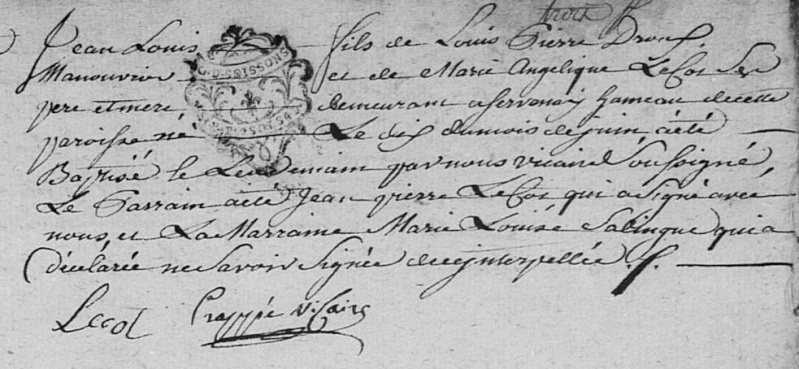 trois
Jean Louis fils de Louis Pierre Droux,
Manouvrier et de Marie Angelique LeCot Ses
pere et mere demeurant a Servenay hameau de cette
paroisse né Le dix du mois de juin a été
Baptisé le Lendemain par nous vicaire Soussigné,
Le Parrain a été Jean pierre LeCot qui a signé avec
nous, et La Marraine Marie Louise Salingue qui a
déclarée ne Savoir Signée de ce interpellée
G. D. SOISSONS
Lecot Frappé Vicaire